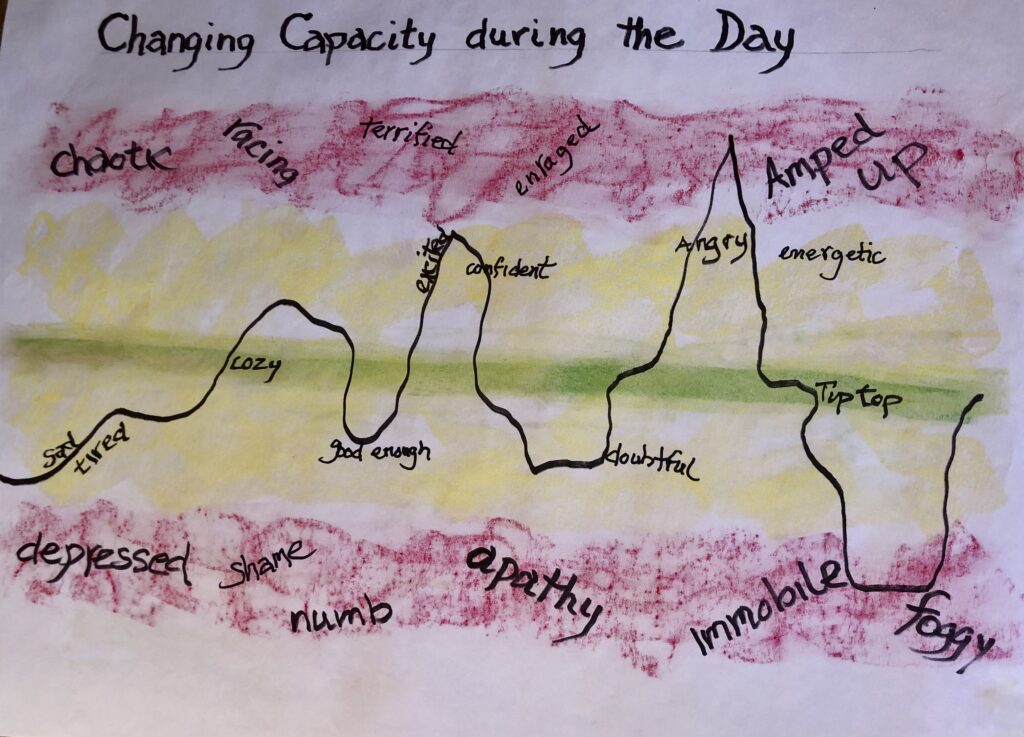 Changing Capacity during the Day
chaotic
racing
terrified
enraged
Amped
up
excited
confident
Angry
energetic
cozy
Tiptop
sad
tired
good enough
doubtful
depressed
shame
numb
apathy
Immobile
foggy